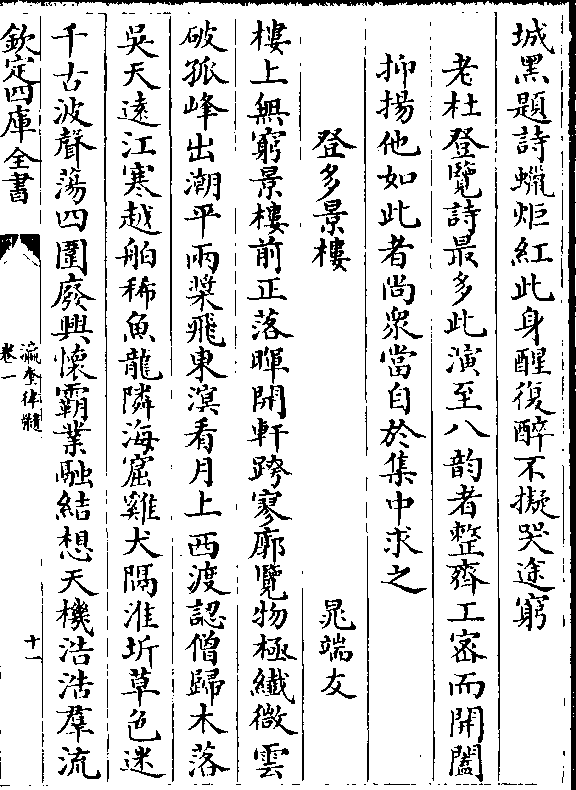 城黑題詩蠟炬紅此身醒復醉不擬哭途窮
老杜登覽詩最多此演至八韵者整齊工密而開闔
抑揚他如此者尚衆當自於集中求之
登多景樓
晁端友
樓上無窮景樓前正落暉開軒跨寥廓覽物極纎微雲
破孤峰出潮平兩槳飛東溟看月上西渡認僧歸木落
吳天遠江寒越舶稀魚龍隣海窟雞犬隔淮圻草色迷
千古波聲蕩四圍廢興懷霸業融結想天機浩浩羣流
欽定四庫全書
瀛奎律髓
卷一
十一